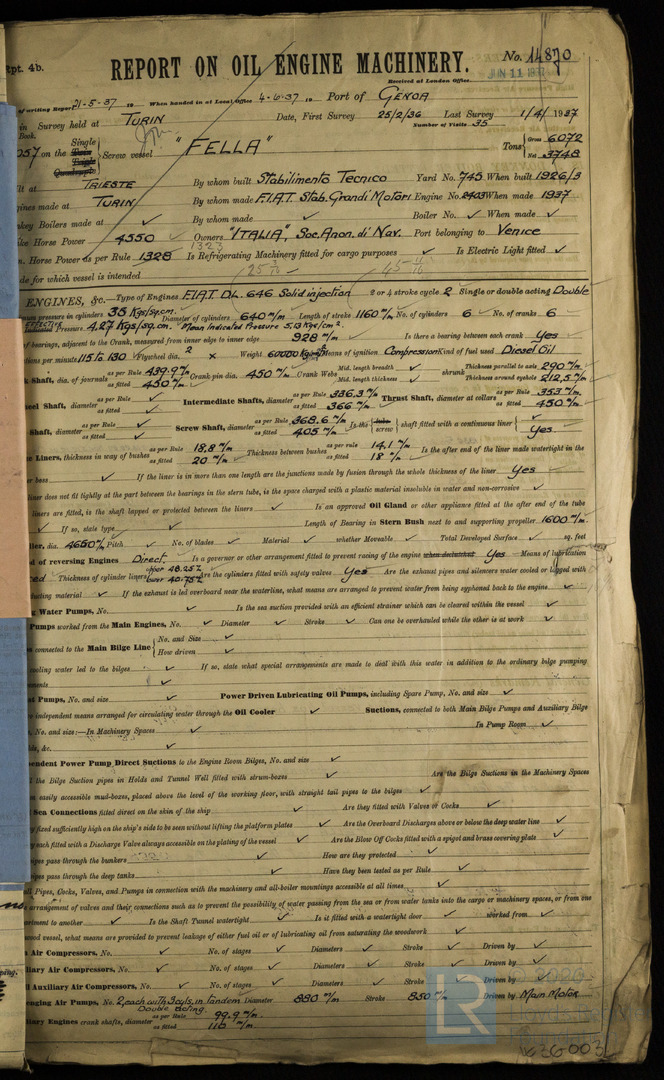 Rpt. 4b.
REPORT ON OIL ENGINE MACHINERY.
No. 14870
Received at London Office
JUN 11 1937
of writing Report 21-5-37 19 When handed in at Local Office 4-6-37 19 Port of GENOA
in Survey held at TURIN Date, First Survey 25/2/36 Last Survey 1/4/1937
Book. Number of Visits 35
057 on the Single Twin Triple Quadruple Screw vessel "FELLA" Tons Gross 6072 Net 3748
lt at TRIESTE By whom built Stabilimento Tecnico Yard No. 745 When built 1926/3
gines made at TURIN By whom made F.I.A.T. Stab. Grandi Motori Engine No. 2403 When made 1937
key Boilers made at ✓ By whom made ✓ Boiler No. ✓ When made ✓
ke Horse Power 4550 Owners "ITALIA", Soc. Anon. di Nav. Port belonging to Venice
1323
Horse Power as per Rule 1328 Is Refrigerating Machinery fitted for cargo purposes ✓ Is Electric Light fitted ✓
de for which vessel is intended
ENGINES, &c.—Type of Engines F.I.A.T. DL. 646 Solid injection 2 or 4 stroke cycle 2 Single or double acting Double
um pressure in cylinders 35 Kgs/sq.cm. Diameter of cylinders 640 m/m Length of stroke 1160 m/m No. of cylinders 6 No. of cranks 6
Pressure 4.27 Kgs/sq.cm. Mean Indicated Pressure 5.13 Kgs/cm².
of bearings, adjacent to the Crank, measured from inner edge to inner edge 928 m/m Is there a bearing between each crank Yes
utions per minute 115 to 130 Flywheel dia. 2 x Weight 60000 Kgm² Means of ignition Compression Kind of fuel used Diesel Oil
k Shaft, dia. of journals as per Rule 439.9 m/m as fitted 450 m/m Crank pin dia. 450 m/m Crank Webs Mid. length breadth ✓ Mid. length thickness ✓ shrunk Thickness parallel to axis 290 m/m Thickness around eyehole 212.5 m/m
eel Shaft, diameter as per Rule ✓ as fitted ✓ Intermediate Shafts, diameter as per Rule 336.3 m/m as fitted 366 m/m Thrust Shaft, diameter at collars as per Rule 353 m/m as fitted 450 m/m
Shaft, diameter as per Rule ✓ as fitted ✓ Screw Shaft, diameter as per Rule 368.6 m/m as fitted 405 m/m Is the tube screw shaft fitted with a continuous liner Yes
e Liners, thickness in way of bushes as per Rule 18.8 m/m as fitted 20 m/m Thickness between bushes as per rule 14.1 m/m as fitted 18 m/m Is the after end of the liner made watertight in the
er boss ✓ If the liner is in more than one length are the junctions made by fusion through the whole thickness of the liner Yes
liner does not fit tightly at the part between the bearings in the stern tube, is the space charged with a plastic material insoluble in water and non-corrosive ✓
liners are fitted, is the shaft lapped or protected between the liners ✓ Is an approved Oil Gland or other appliance fitted at the after end of the tube
✓ If so, state type ✓ Length of Bearing in Stern Bush next to and supporting propeller 1600 m/m
ller, dia. 4650 m/m Pitch ✓ No. of blades ✓ Material ✓ whether Moveable ✓ Total Developed Surface ✓ sq. feet
d of reversing Engines Direct Is a governor or other arrangement fitted to prevent racing of the engine when declutched Yes Means of lubrication
ced Thickness of cylinder liners upper 48.25 lower 40.75 Are the cylinders fitted with safety valves Yes Are the exhaust pipes and silencers water cooled or lagged with
ducting material ✓ If the exhaust is led overboard near the waterline, what means are arranged to prevent water being syphoned back to the engine ✓
g Water Pumps, No. ✓ Is the sea suction provided with an efficient strainer which can be cleared within the vessel ✓
Pumps worked from the Main Engines, No. ✓ Diameter ✓ Stroke ✓ Can one be overhauled while the other is at work ✓
s connected to the Main Bilge Line No. and Size ✓ How driven ✓
cooling water led to the bilges ✓ If so, state what special arrangements are made to deal with this water in addition to the ordinary bilge pumping
ements ✓
st Pumps, No. and size ✓ Power Driven Lubricating Oil Pumps, including Spare Pump, No. and size ✓
o independent means arranged for circulating water through the Oil Cooler ✓ Suctions, connected to both Main Bilge Pumps and Auxiliary Bilge
, No. and size:—In Machinery Spaces ✓ In Pump Room ✓
lds, &c. ✓
pendent Power Pump Direct Suctions to the Engine Room Bilges, No. and size ✓
l the Bilge Suction pipes in Holds and Tunnel Well fitted with strum-boxes ✓ Are the Bilge Suctions in the Machinery Spaces
m easily accessible mud-boxes, placed above the level of the working floor, with straight tail pipes to the bilges ✓
Sea Connections fitted direct on the skin of the ship ✓ Are they fitted with Valves or Cocks ✓
y fixed sufficiently high on the ship's side to be seen without lifting the platform plates ✓ Are the Overboard Discharges above or below the deep water line ✓
y each fitted with a Discharge Valve always accessible on the plating of the vessel ✓ Are the Blow Off Cocks fitted with a spigot and brass covering plate ✓
ipes pass through the bunkers ✓ How are they protected ✓
ipes pass through the deep tanks ✓ Have they been tested as per Rule ✓
ll Pipes, Cocks, Valves, and Pumps in connection with the machinery and all boiler mountings accessible at all times ✓
e arrangement of valves and their connections such as to prevent the possibility of water passing from the sea or from water tanks into the cargo or machinery spaces, or from one
artment to another ✓ Is the Shaft Tunnel watertight ✓ Is it fitted with a watertight door ✓ worked from ✓
wood vessel, what means are provided to prevent leakage of either fuel oil or of lubricating oil from saturating the woodwork ✓
n Air Compressors, No. ✓ No. of stages ✓ Diameters ✓ Stroke ✓ Driven by ✓
liary Air Compressors, No. ✓ No. of stages ✓ Diameters ✓ Stroke ✓ Driven by ✓
l Auxiliary Air Compressors, No. ✓ No. of stages ✓ Diameters ✓ Stroke ✓ Driven by ✓
enging Air Pumps, No. 2, each with 3 cyls. in tandem Diameter 880 m/m Stroke 850 m/m Driven by Main Motor
Double acting.
liary Engines crank shafts, diameter as per Rule 99.9 m/m as fitted 110 m/m
LR